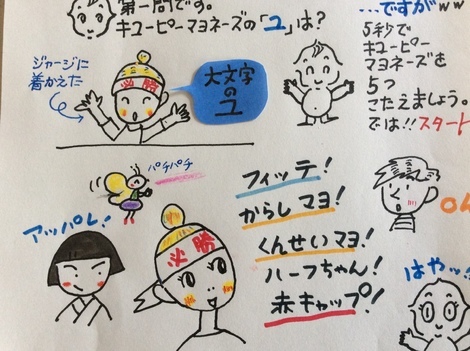 第一問です。
キユーピーマヨネーズの「ユ」は?
ジャージに
着かえた
必勝
大文字
の
ユ
...ですがww
5秒で
キユーピー
マヨネーズを
5つ
こたえましょう。
では!!スタート
パチパチ
アッパレ!
必勝
フィッテ!
からしマヨ!
くんせいマヨ!
ハーフちゃん!
赤キャップ!
はやッ